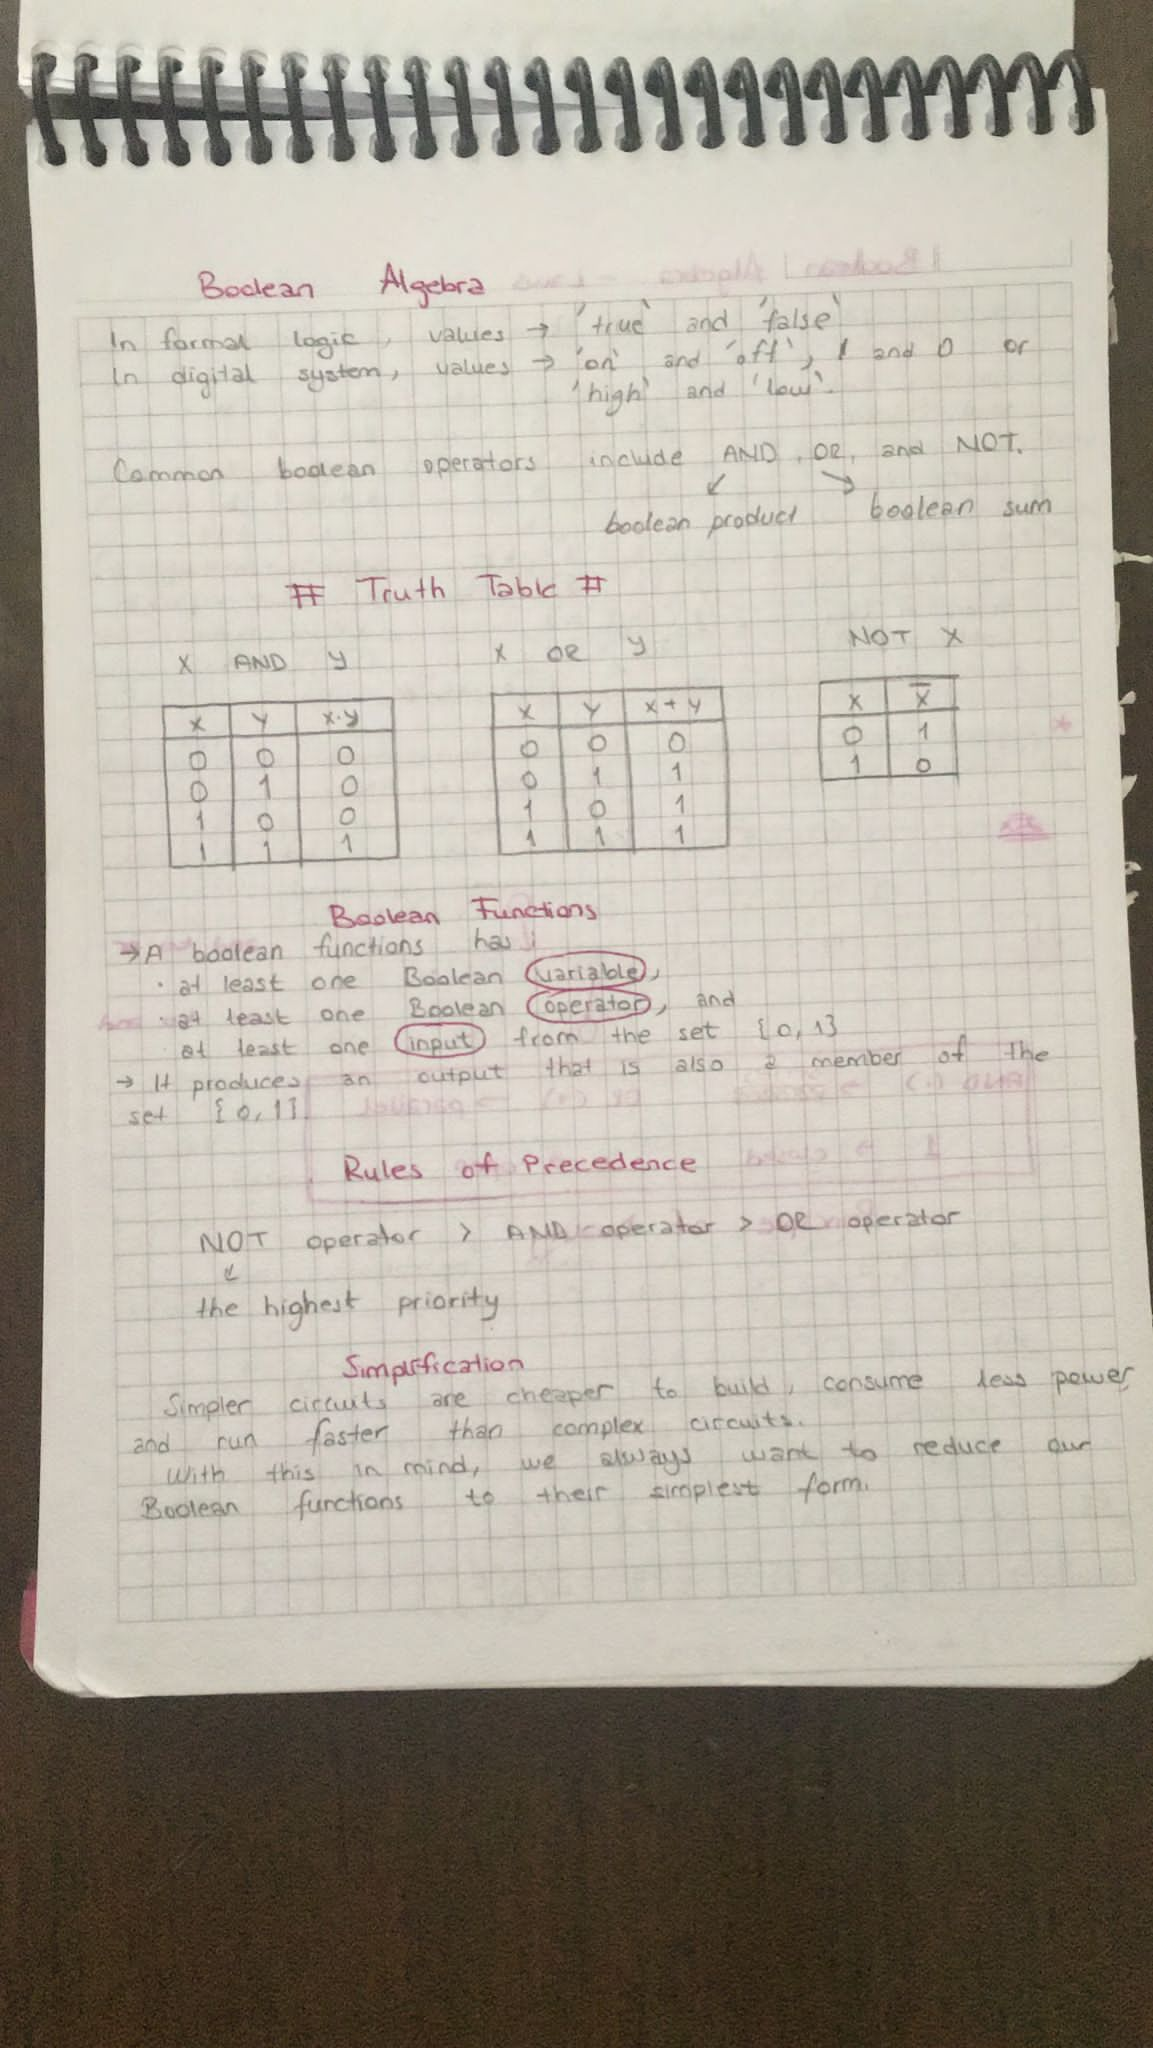 Boolean Algebra
In formal logic, values → 'true' and 'false'
In digital system, values → 'on' and 'off', 1 and 0 or
'high' and 'low'.
Common boolean operators include AND, OR, and NOT.
boolean product boolean sum
# Truth Table #
X AND Y X OR Y NOT X
X Y X·Y
0 0 0
0 1 0
1 0 0
1 1 1
X Y X+Y
0 0 0
0 1 1
1 0 1
1 1 1
X X̅
0 1
1 0
Boolean Functions
→ A boolean functions has:
· at least one Boolean variable,
· at least one Boolean operator, and
at least one input from the set {0,1}
→ It produces an output that is also a member of the
set {0,1}.
Rules of Precedence
NOT operator > AND operator > OR operator
↓
the highest priority
Simplification
Simpler circuits are cheaper to build, consume less power,
and run faster than complex circuits.
With this in mind, we always want to reduce our
Boolean functions to their simplest form.